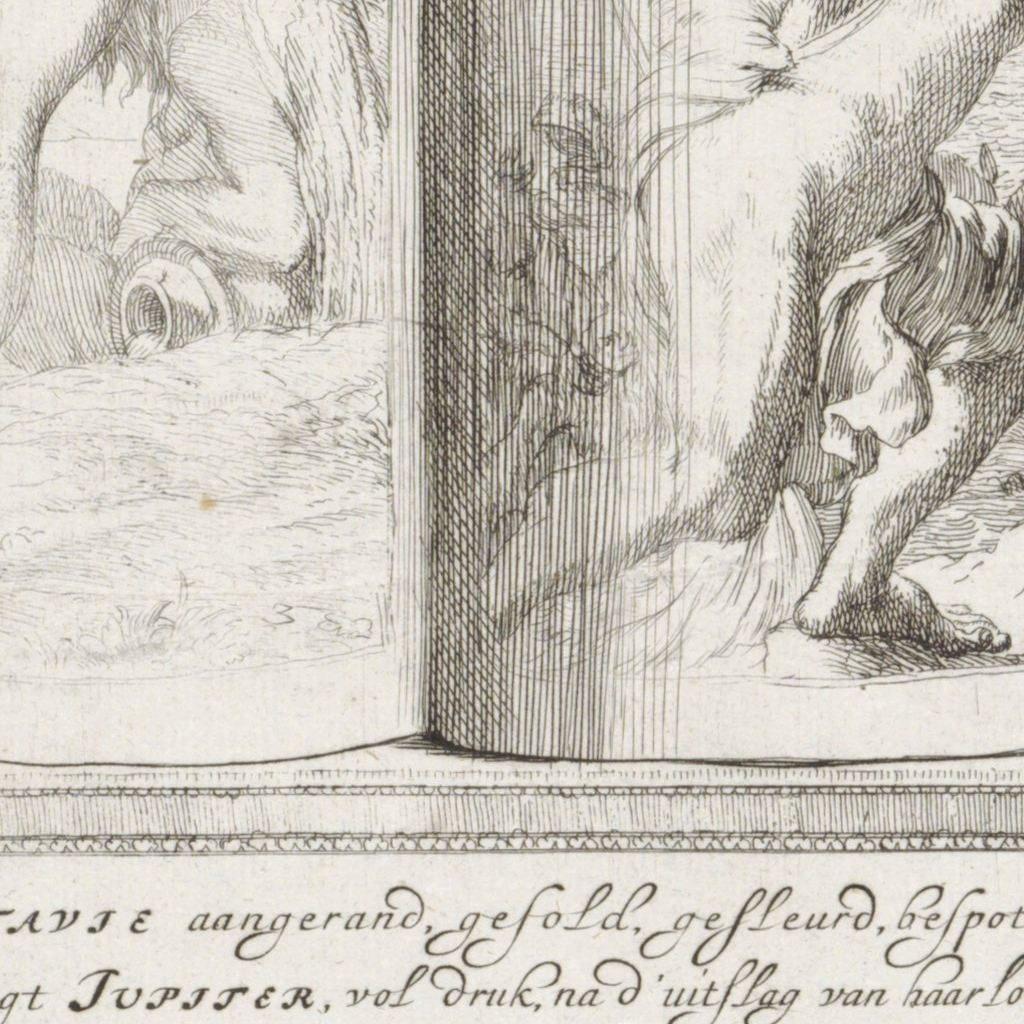 TAVIE aangerand, gesold, gesleurd, bespot
gt JUPITER, vol druk, na d'uitslag van haar lo